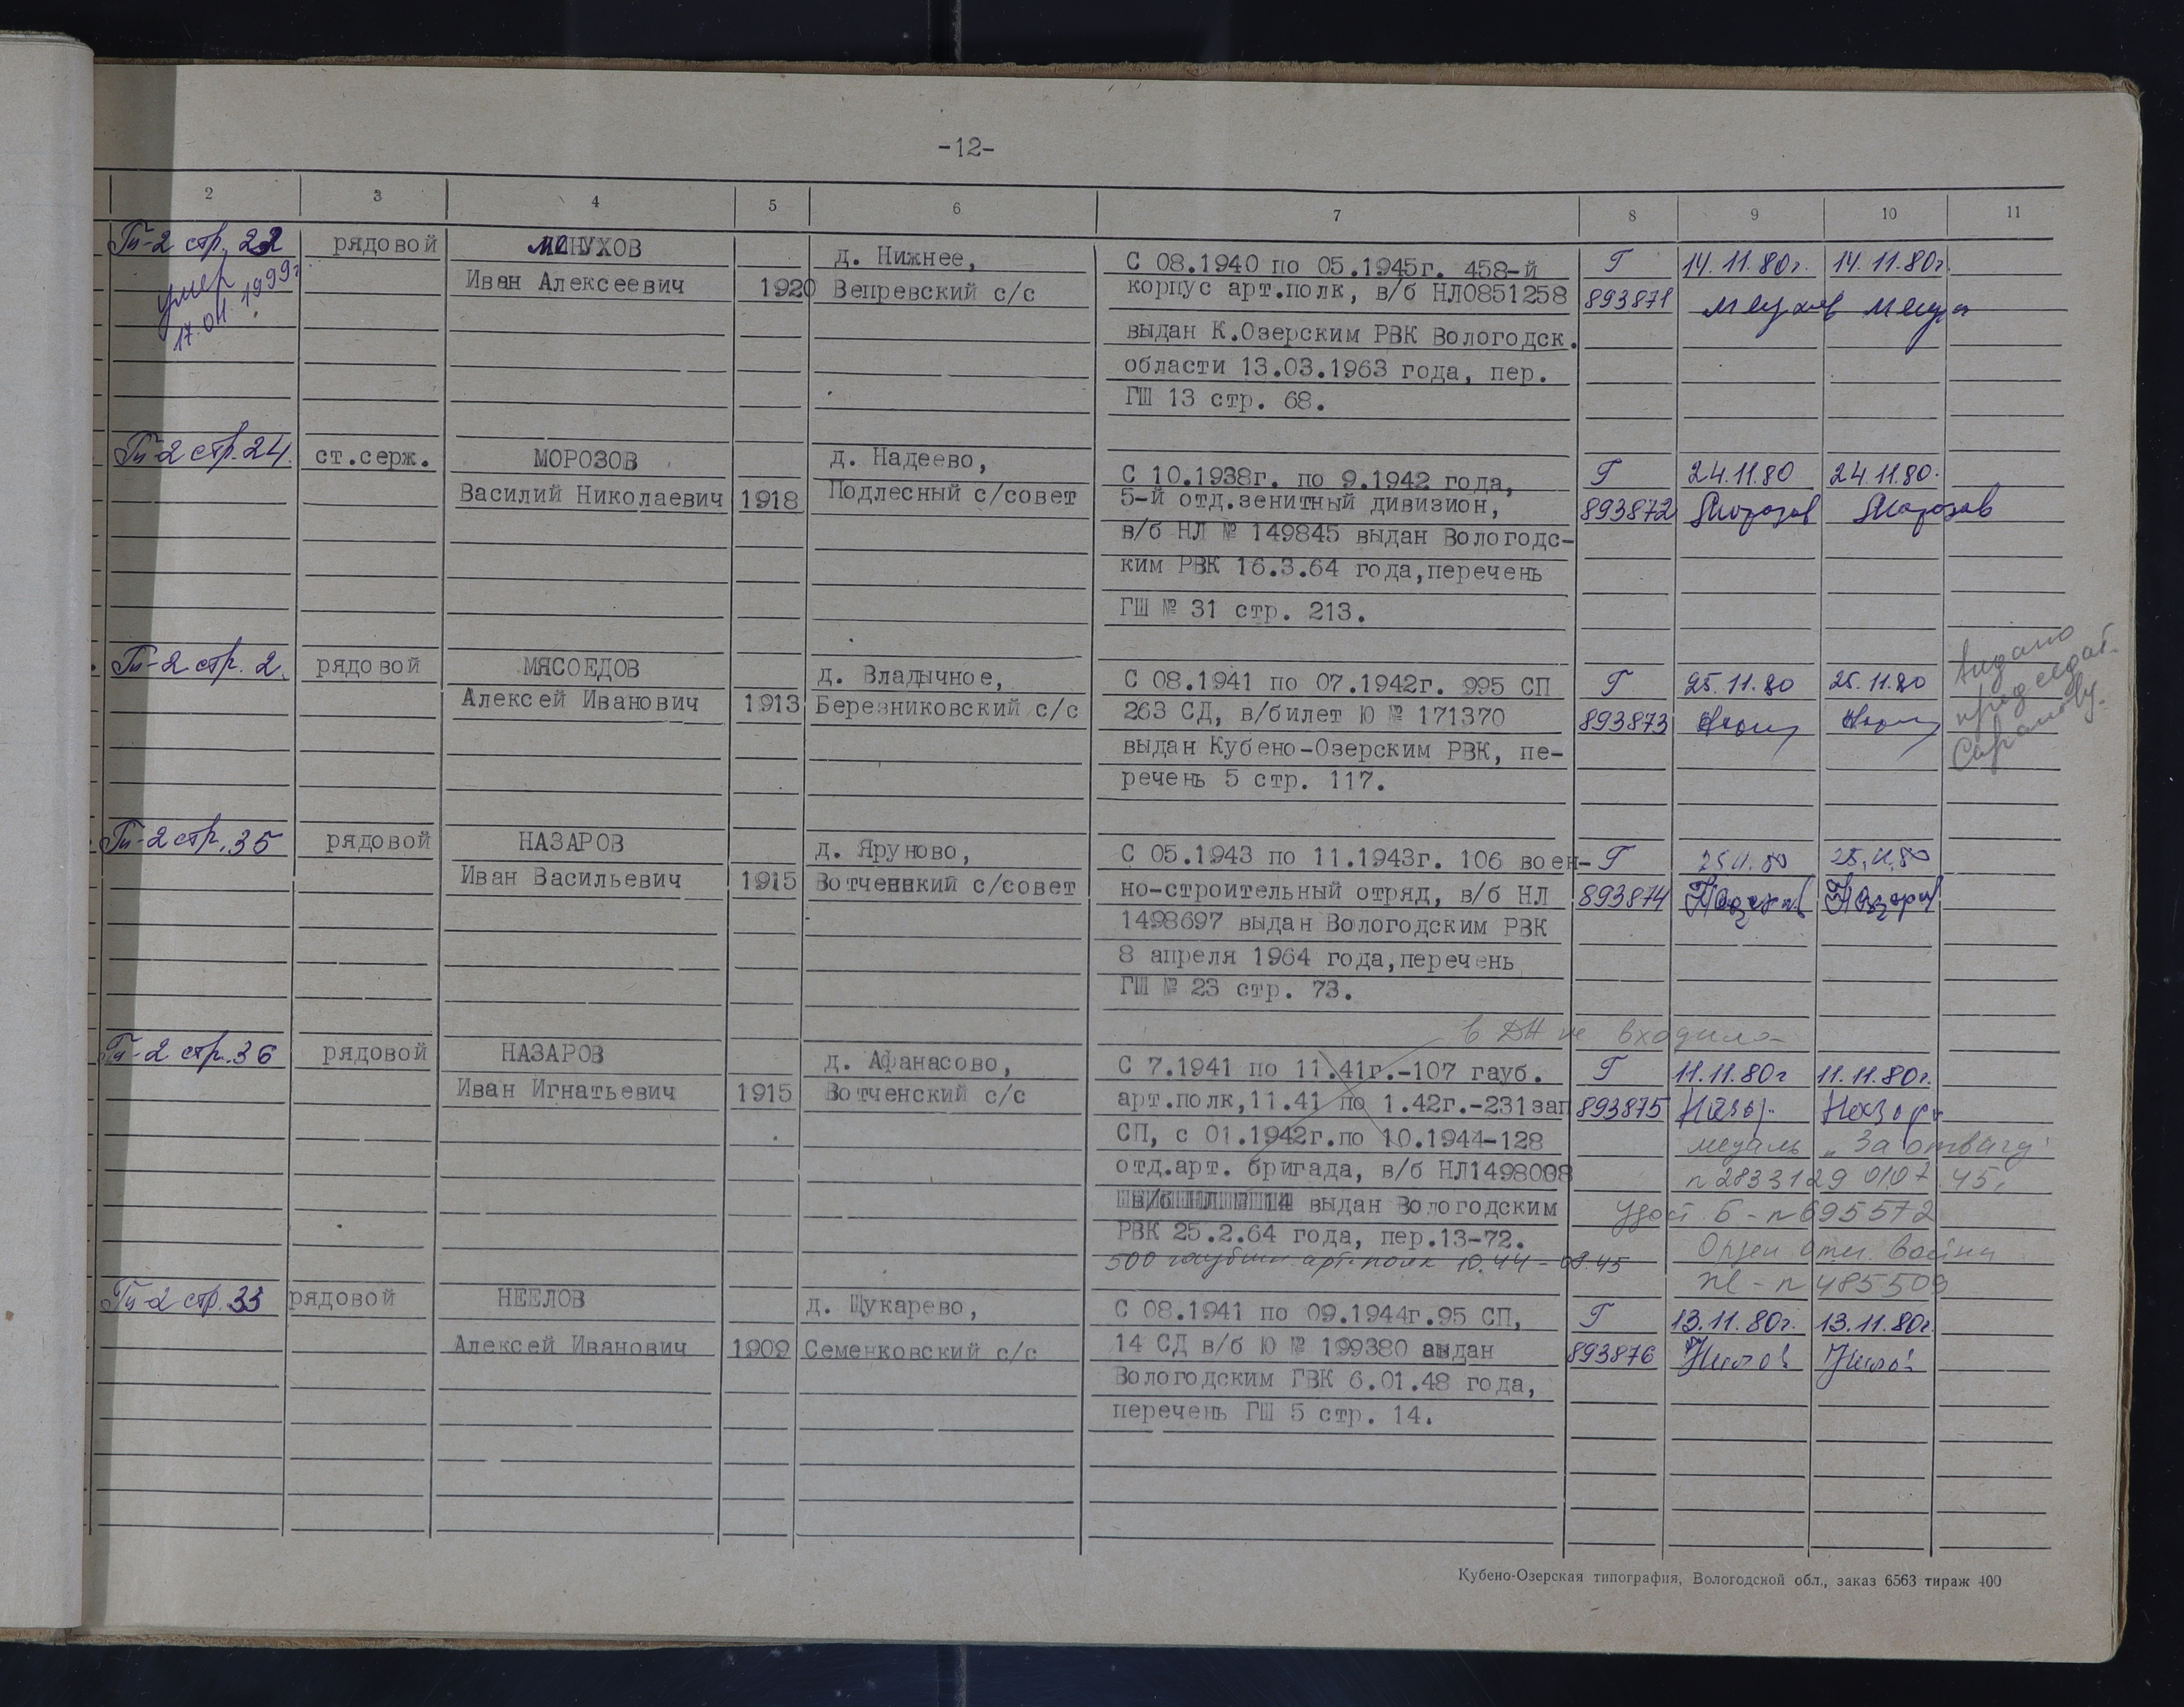 -12-
2 3 4 5 6 7 8 9 10 11
Гп-2 стр. 22 рядовой МЕНУХОВ д. Нижнее, С 08.1940 по 05.1945г. 458-й Г 14.11.80г. 14.11.80г.
умер 17.04.1999г
Иван Алексеевич 1920 Вепревский с/с корпус арт.полк, в/б НЛ0851258 893871
выдан К.Озерским РВК Вологодск.
области 13.03.1963 года, пер.
ГШ 13 стр. 68.
Гп-2 стр. 24. ст.серж. МОРОЗОВ д. Надеево, С 10.1938г. по 9.1942 года, Г 24.11.80 24.11.80.
Василий Николаевич 1918 Подлесный с/совет 5-й отд.зенитный дивизион, 893872 Морозов Морозов
в/б НЛ № 149845 выдан Вологодс-
ким РВК 16.3.64 года,перечень
ГШ № 31 стр. 213.
Гп-2 стр. 2. рядовой МЯСОЕДОВ д. Владычное, С 08.1941 по 07.1942г. 995 СП Г 25.11.80 25.11.80 выдано председат.
Алексей Иванович 1913 Березниковский с/с 263 СД, в/билет Ю № 171370 893873
выдан Кубено-Озерским РВК, пе-
речень 5 стр. 117.
Гп-2 стр. 35 рядовой НАЗАРОВ д. Яруново, С 05.1943 по 11.1943г. 106 воен- Г 25.11.80 25.11.80
Иван Васильевич 1915 Вотченский с/совет но-строительный отряд, в/б НЛ 893874 Назаров Назаров
1498697 выдан Вологодским РВК
8 апреля 1964 года,перечень
ГШ № 23 стр. 73.
в ДА не входила
Гп-2 стр. 36 рядовой НАЗАРОВ д. Афанасово, С 7.1941 по 11.41г.-107 гауб. Г 11.11.80г 11.11.80г.
Иван Игнатьевич 1915 Вотченский с/с арт.полк,11.41 по 1.42г.-231зап 893875 Назар. Назаров
СП, с 01.1942г.по 10.1944-128 медаль "За отвагу"
отд.арт. бригада, в/б НЛ1498008 n 2833129 01.07.45.
выдан Вологодским удост. Б-n 695572
РВК 25.2.64 года, пер.13-72. Орден отеч. войны
500 гаубичн. арт. полк 10.44 - 08.45 n 485509
Гп-2 стр. 33 рядовой НЕЕЛОВ д. Щукарево, С 08.1941 по 09.1944г.95 СП, Г 13.11.80г. 13.11.80г.
Алексей Иванович 1909 Семенковский с/с 14 СД в/б Ю № 199380 выдан 893876
Вологодским ГВК 6.01.48 года,
перечень ГШ 5 стр. 14.
Кубено-Озерская типография, Вологодской обл., заказ 6563 тираж 400